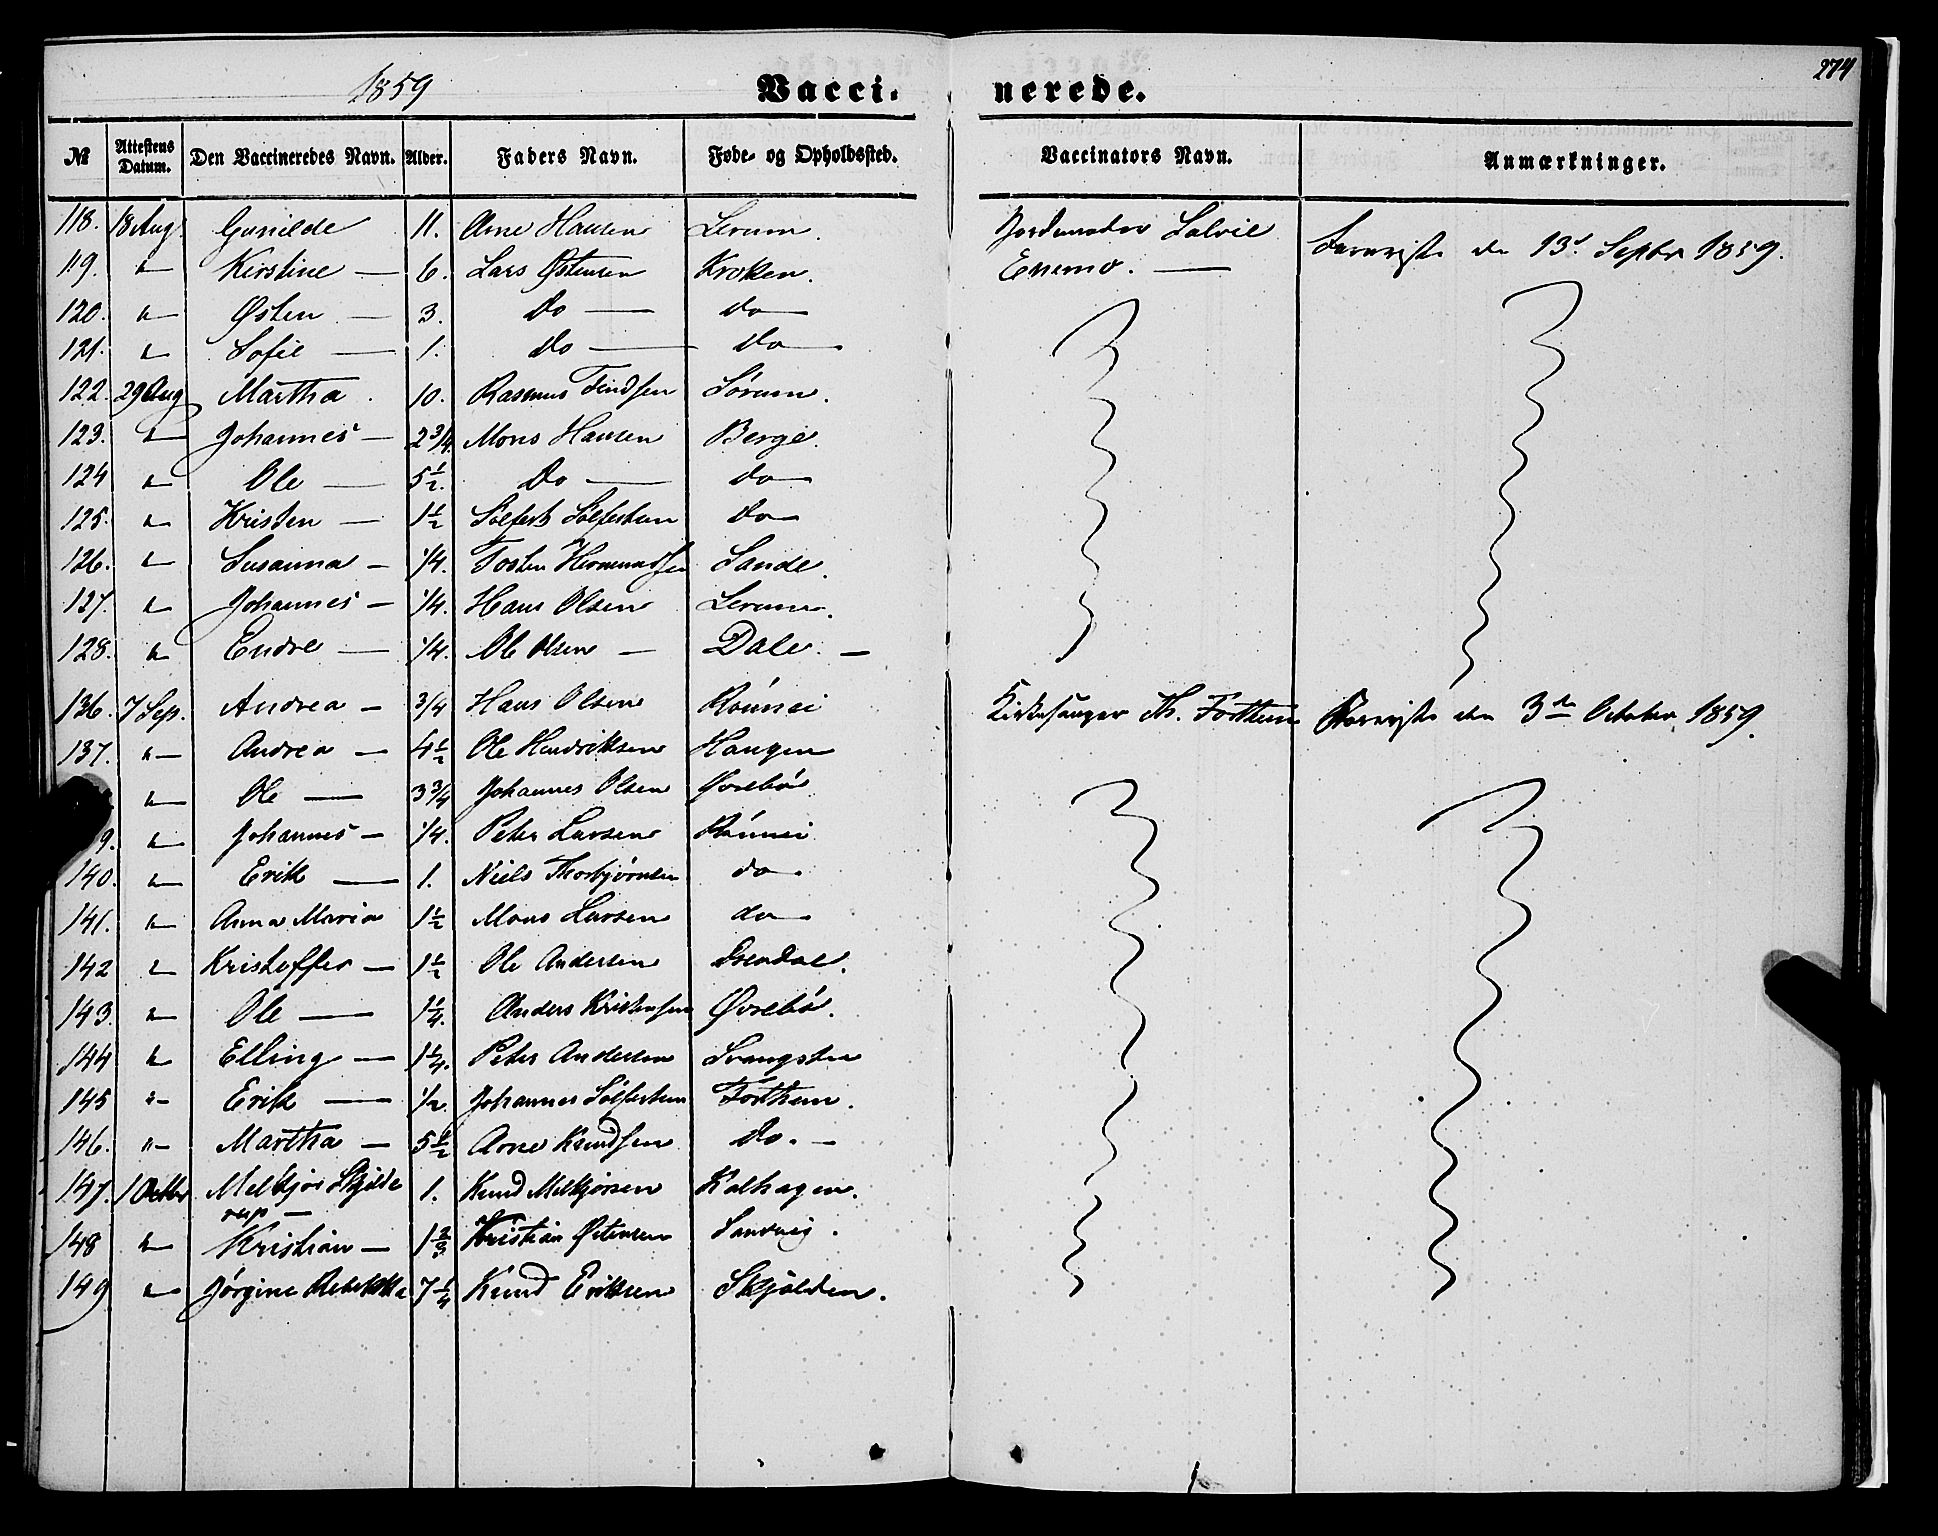 1859
Vacci- nerede.
274
№ Attestens Datum. Den Vaccineredes Navn. Alder. Faders Navn. Føde- og Opholdssted. Vaccinators Navn. Anmærkninger.
118. 18 Aug Gunilde 11. Arne Hansen Lerum. Jordemoder Salvie
119. " Kirstine — 6. Lars Østensen Kroken. Enemo. — Foreviste den 13d Septbr 1859.
120. " Østen — 3. do — do
121. " Sofie — 1. do — do
122. 29 Aug Martha . 10. Rasmus Findsen Sørum.
123. " Johannes — 2 3/4 Mons Hansen Berge.
124 " Ole — 5 1/2. do — do
125. " Kristen — 1 1/2 Sølfest Sølfestsen do
126. " Susanna — 1/4. Tosten Hermundsen Sande.
127. " Johannes — 1/4. Hans Olsen Lerum.
128. " Endre — 1/4. Ole Olsen — Dale. —
136. 7 Sep. Andrea — 3/4 Hans Olsen Rønnei Kirkesanger Th. Forthun Foreviste den 3de October 1859.
137. " Andrea — 4 1/2 Ole Hendriksen Haugen
" Ole — 3 3/4 Johannes Olsen Øvrebø
9. " Johannes — 1/4. Peter Larsen Rønnei
140. " Erik — 1. Niels Thorbjørnsen do.
141. " Anna Maria 1 1/2 Mons Larsen do
142 " Kristoffer — 1 1/2 Ole Andersen
143. " Ole — 1 1/4. Anders Kristensen Øvrebø.
144 " Elling — 1 1/4. Peter Andersen
145 " Erik — 1/2. Johannes Sølfestsen Forthun.
146. " Martha — 5 1/2 Arne Knudsen do. —
147. 1 Octbr Melkjor Skjilde 1. Knud Melkjorsen Kalhagen.
rup —
148 " Kristian — 1 2/3 Kristian Østensen Sandvig.
149 " Jørgine Rebekka 7 1/4 Knud Eriksen Skjolden.